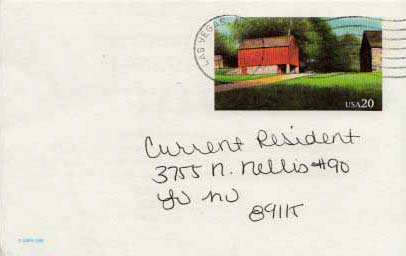 LAS VEGAS
USA20
Current Resident
3755 N. Nellis #90
LV NV
89115
© USPS